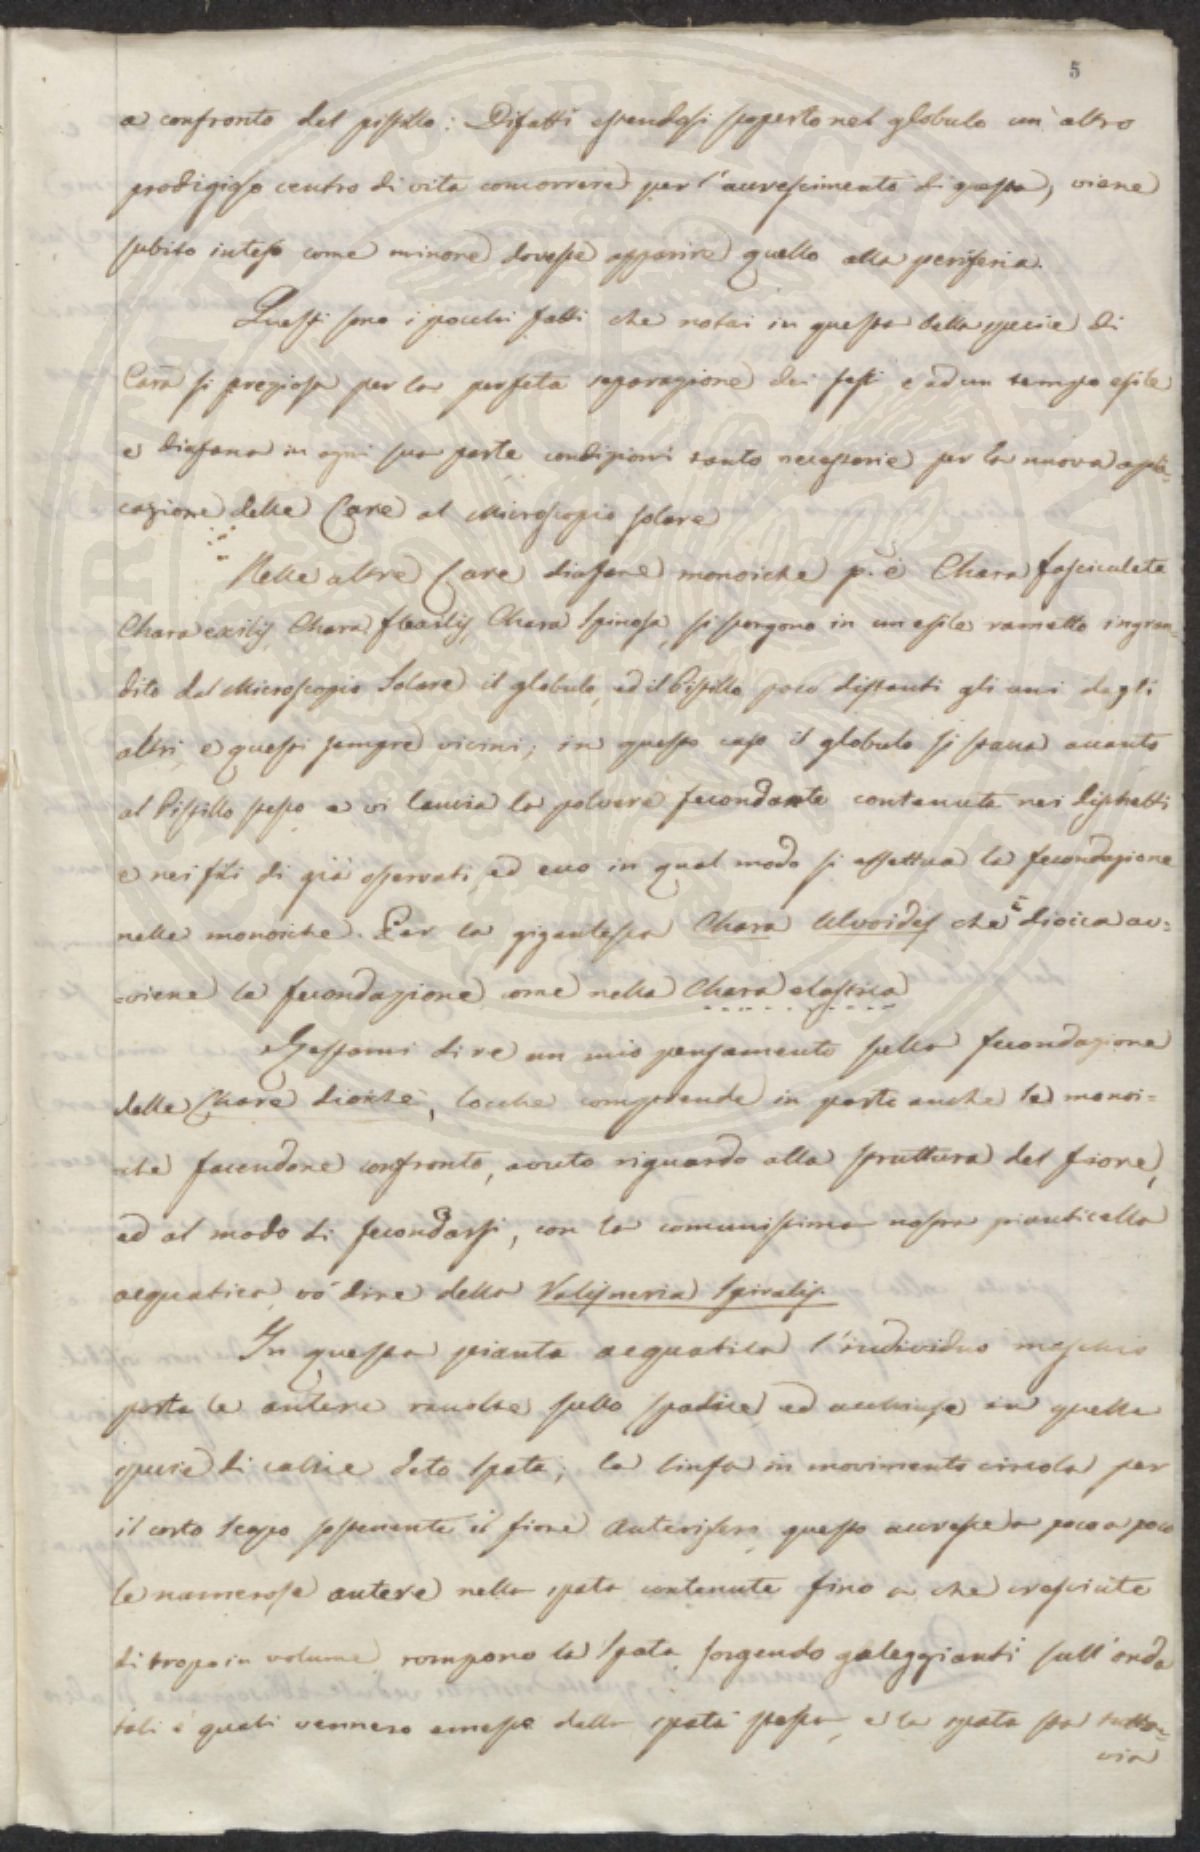 5
a confronto del pistillo: Difatti essendosi scoperto nel globulo un'altro
prodigioso centro di vita concorrere per l'accrescimento di questa, viene
subito inteso come minore dovesse apparire quello alla periferia.
Questi sono i pochi fatti che notai in questa bella specie di
Cara si pregiosa per la perfeta separazione dei sessi e ad un tempo esile
e diafana in ogni sua parte condizioni tanto necessarie per la nuova appli-
cazione delle Care al Microscopio solare
Nelle altre Care diafane monoiche p. e Chara fasciculata
Chara exilis, Chara flexilis, Chara Spinosa, si scorgono in un esile rametto ingran-
dito dal Microscopio Solare il globulo, ed il Pistillo poco distanti gli uni dagli
altri, e questi sempre vicini; in questo caso il globulo si stacca accanto
al Pistillo stesso e vi lancia la polvere fecondante contenuta nei dischetti
e nei fili di già osservati, ed ecco in qual modo si effettua la fecondazione
nelle monoiche. Per la gigantesca Chara Ulvoides che è dioica av=
=viene la fecondazione come nella Chara elastica
Restami dire un mio pensamento sulla fecondazione
delle Chare dioiche, locche comprende in parte anche le monoi=
che facendone confronto, avuto riguardo alla struttura del fiore,
ed al modo di fecondarsi, con la comunissima nostra pianticella
acquatica, vo' dire della Valisneria Spiralis.
In questa pianta acquatica l'individuo maschio
porta le antere raccolte sullo spadice ed acchiuse in quella
specie di calice deto Spata; la linfa in movimento circola per
il corto Scapo sostenente il fiore Anterifero, questo accresce a poco a poco
le numerose antere nella spata contenute fino a che cresciute
di tropo in volume, rompono la Spata, sorgendo galeggianti sull'onda
tali e quali vennero emesse dalla spata stessa, e la spata sta tutta=
via